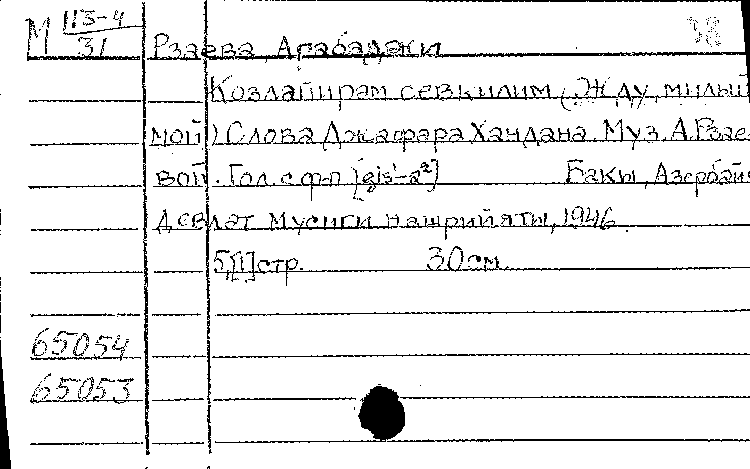 М 113-4
31
38
Рзаева, Агабаджи
Козлайирам севкилим (Жду, милый
мой) Слова Джафара Хандана. Муз. А. Рзае
вой. Гол. с ф-п [gis¹-a²] Бакы, Азербайҹ
Девлат Мусиги нашрийяты, 1946
5,[1] стр. 30 см.
65054
65053